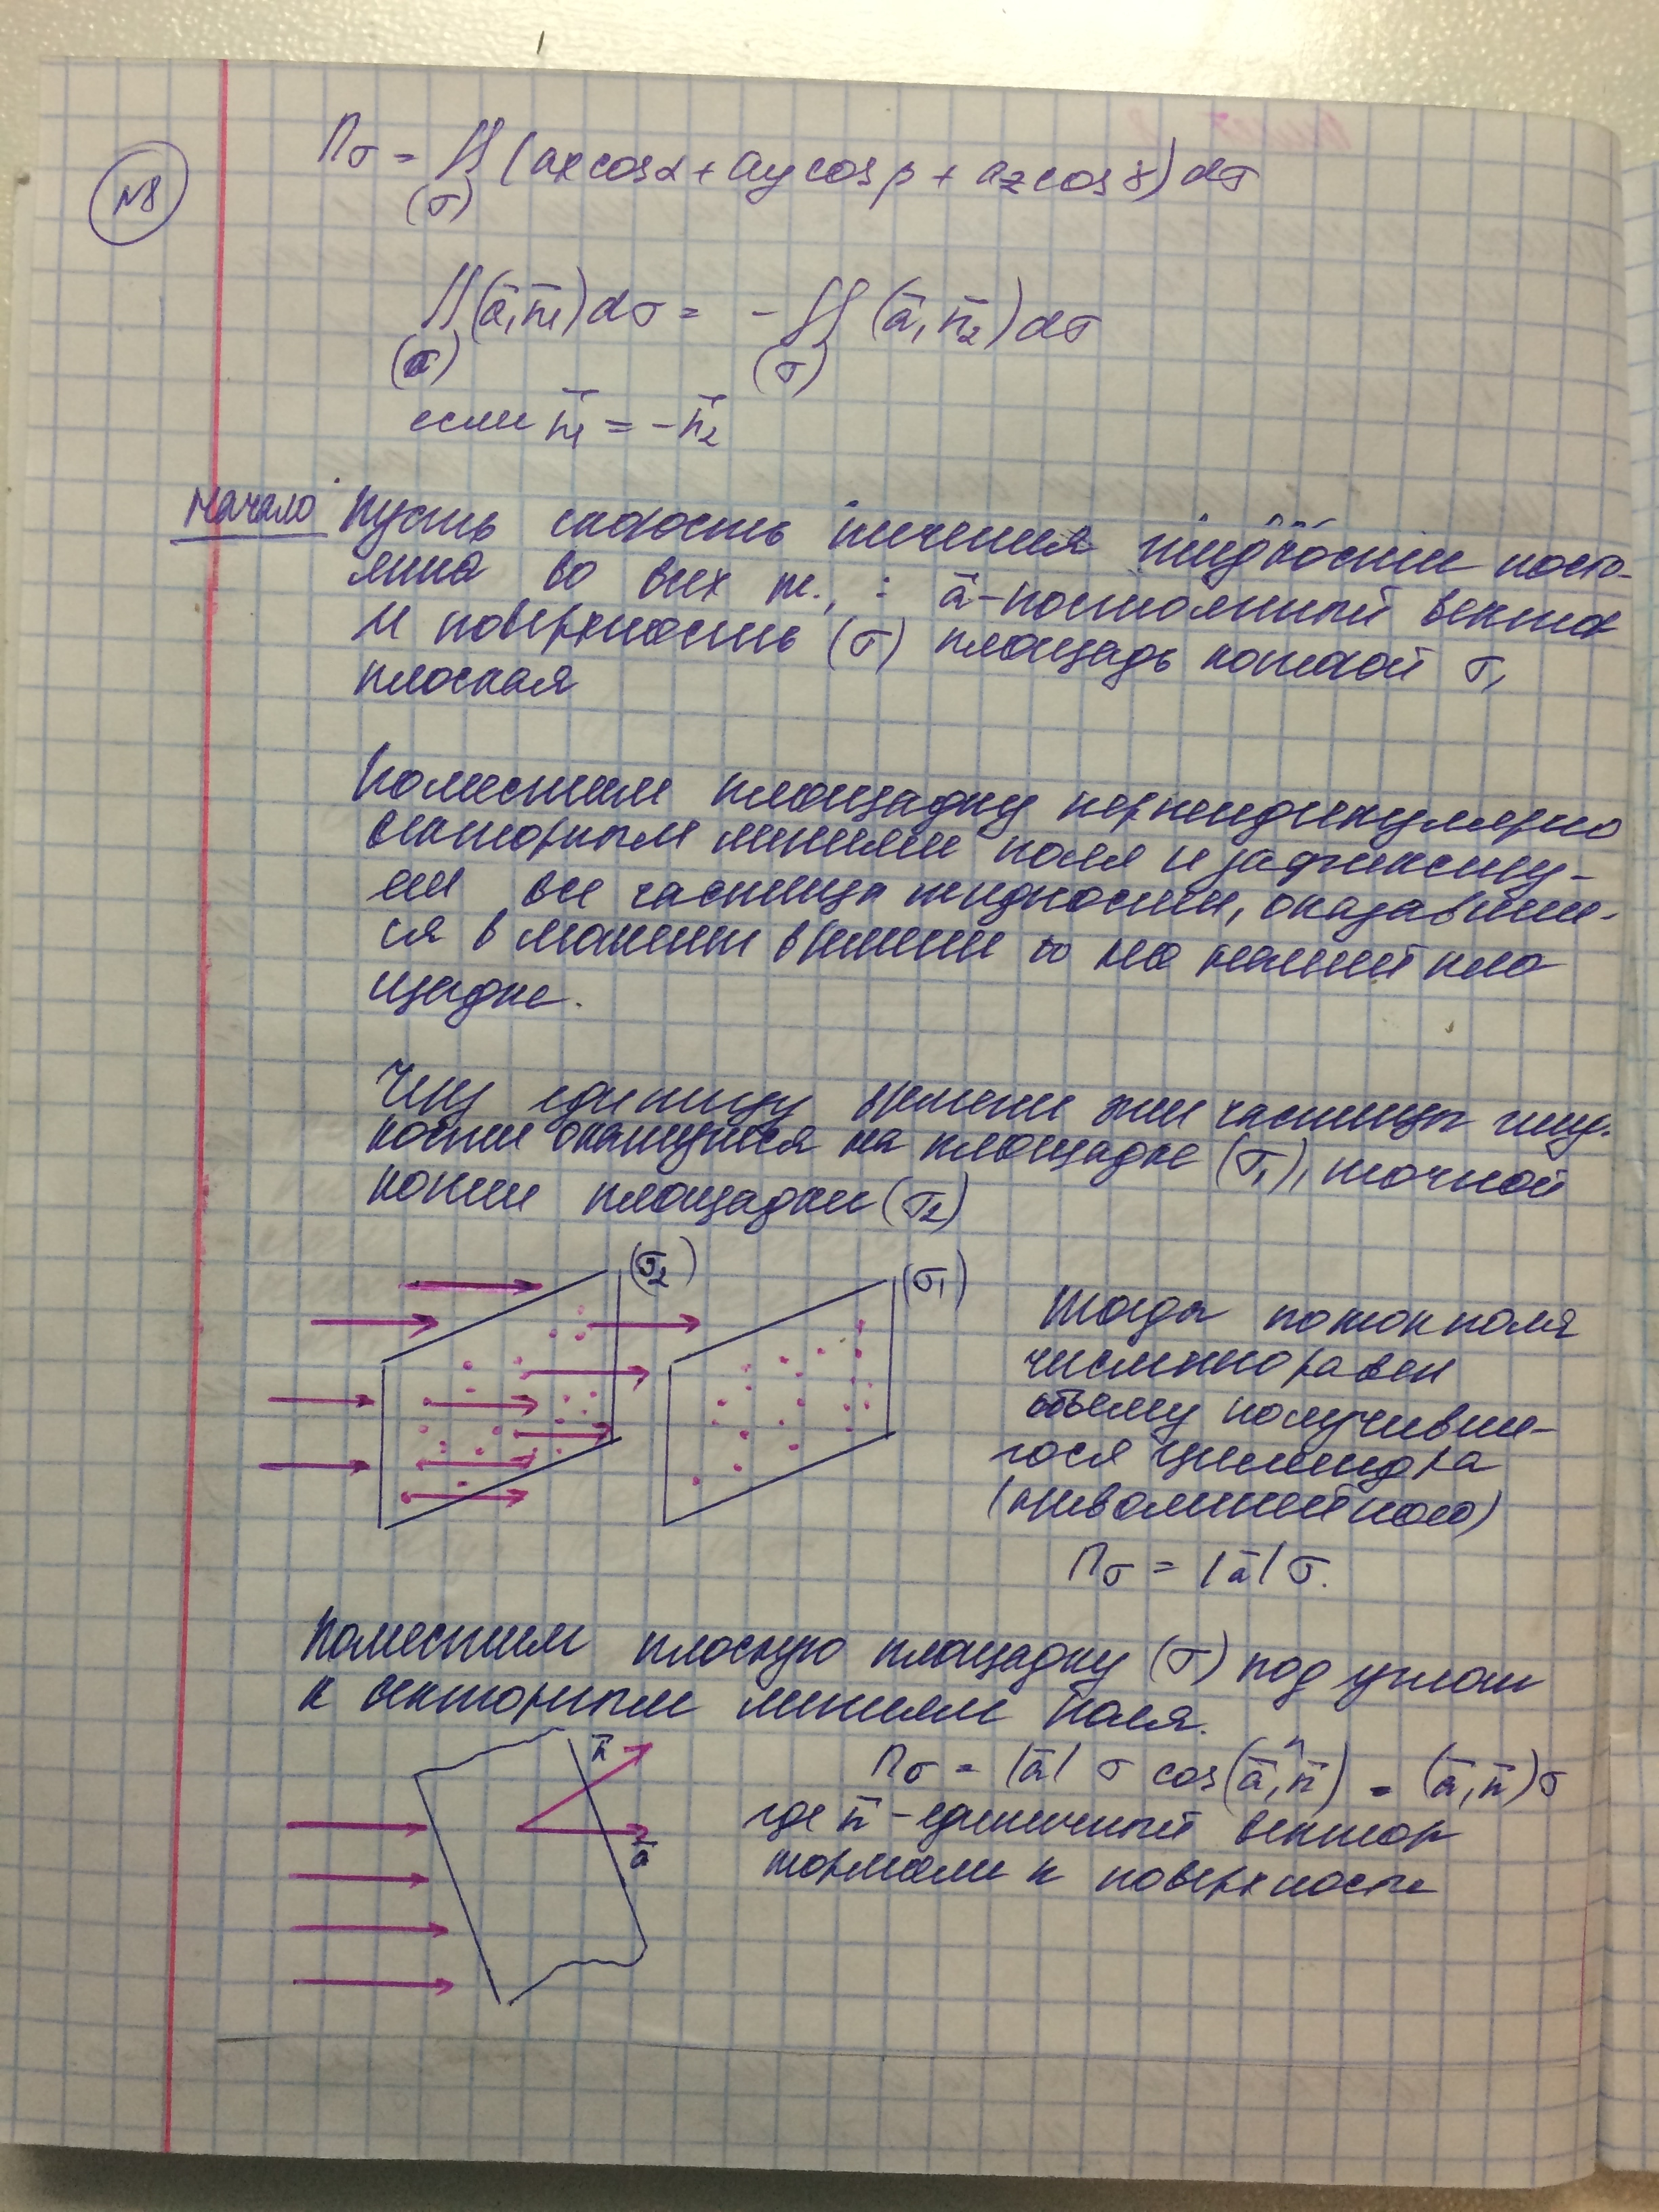 №8
Пσ = ∬(σ) (ax cosα + ay cosβ + az cosγ) dσ
∬(σ) (ā, n̄1) dσ = - ∬(σ) (ā, n̄2) dσ
если n̄1 = - n̄2
Начало Пусть скорость течения жидкости посто-
янна во всех т., : ā - постоянный вектор
И поверхность (σ) площадь которой σ,
плоская
Поместим площадку перпендикулярно
векторным линиям поля и зафиксиру-
ем все частицы жидкости, оказавши-
ся в момент времени t₀ на нашей пло
щадке.
Через единицу времени эти частицы жид-
кости окажутся на площадке (σ1), точной
копии площадки (σ2)
(σ2) (σ1)
Тогда поток поля
численно равен
объему получивше-
гося цилиндра
(криволинейного)
Пσ = |ā| σ.
Поместим плоскую площадку (σ) под углом
к векторным линиям поля.
n̄
ā
Пσ = |ā| σ cos(ā,^n̄) = (ā, n̄)σ
где n̄ - единичный вектор
нормали к поверхности